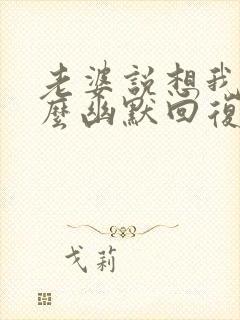 老婆説想我
麼幽默回復
戈莉